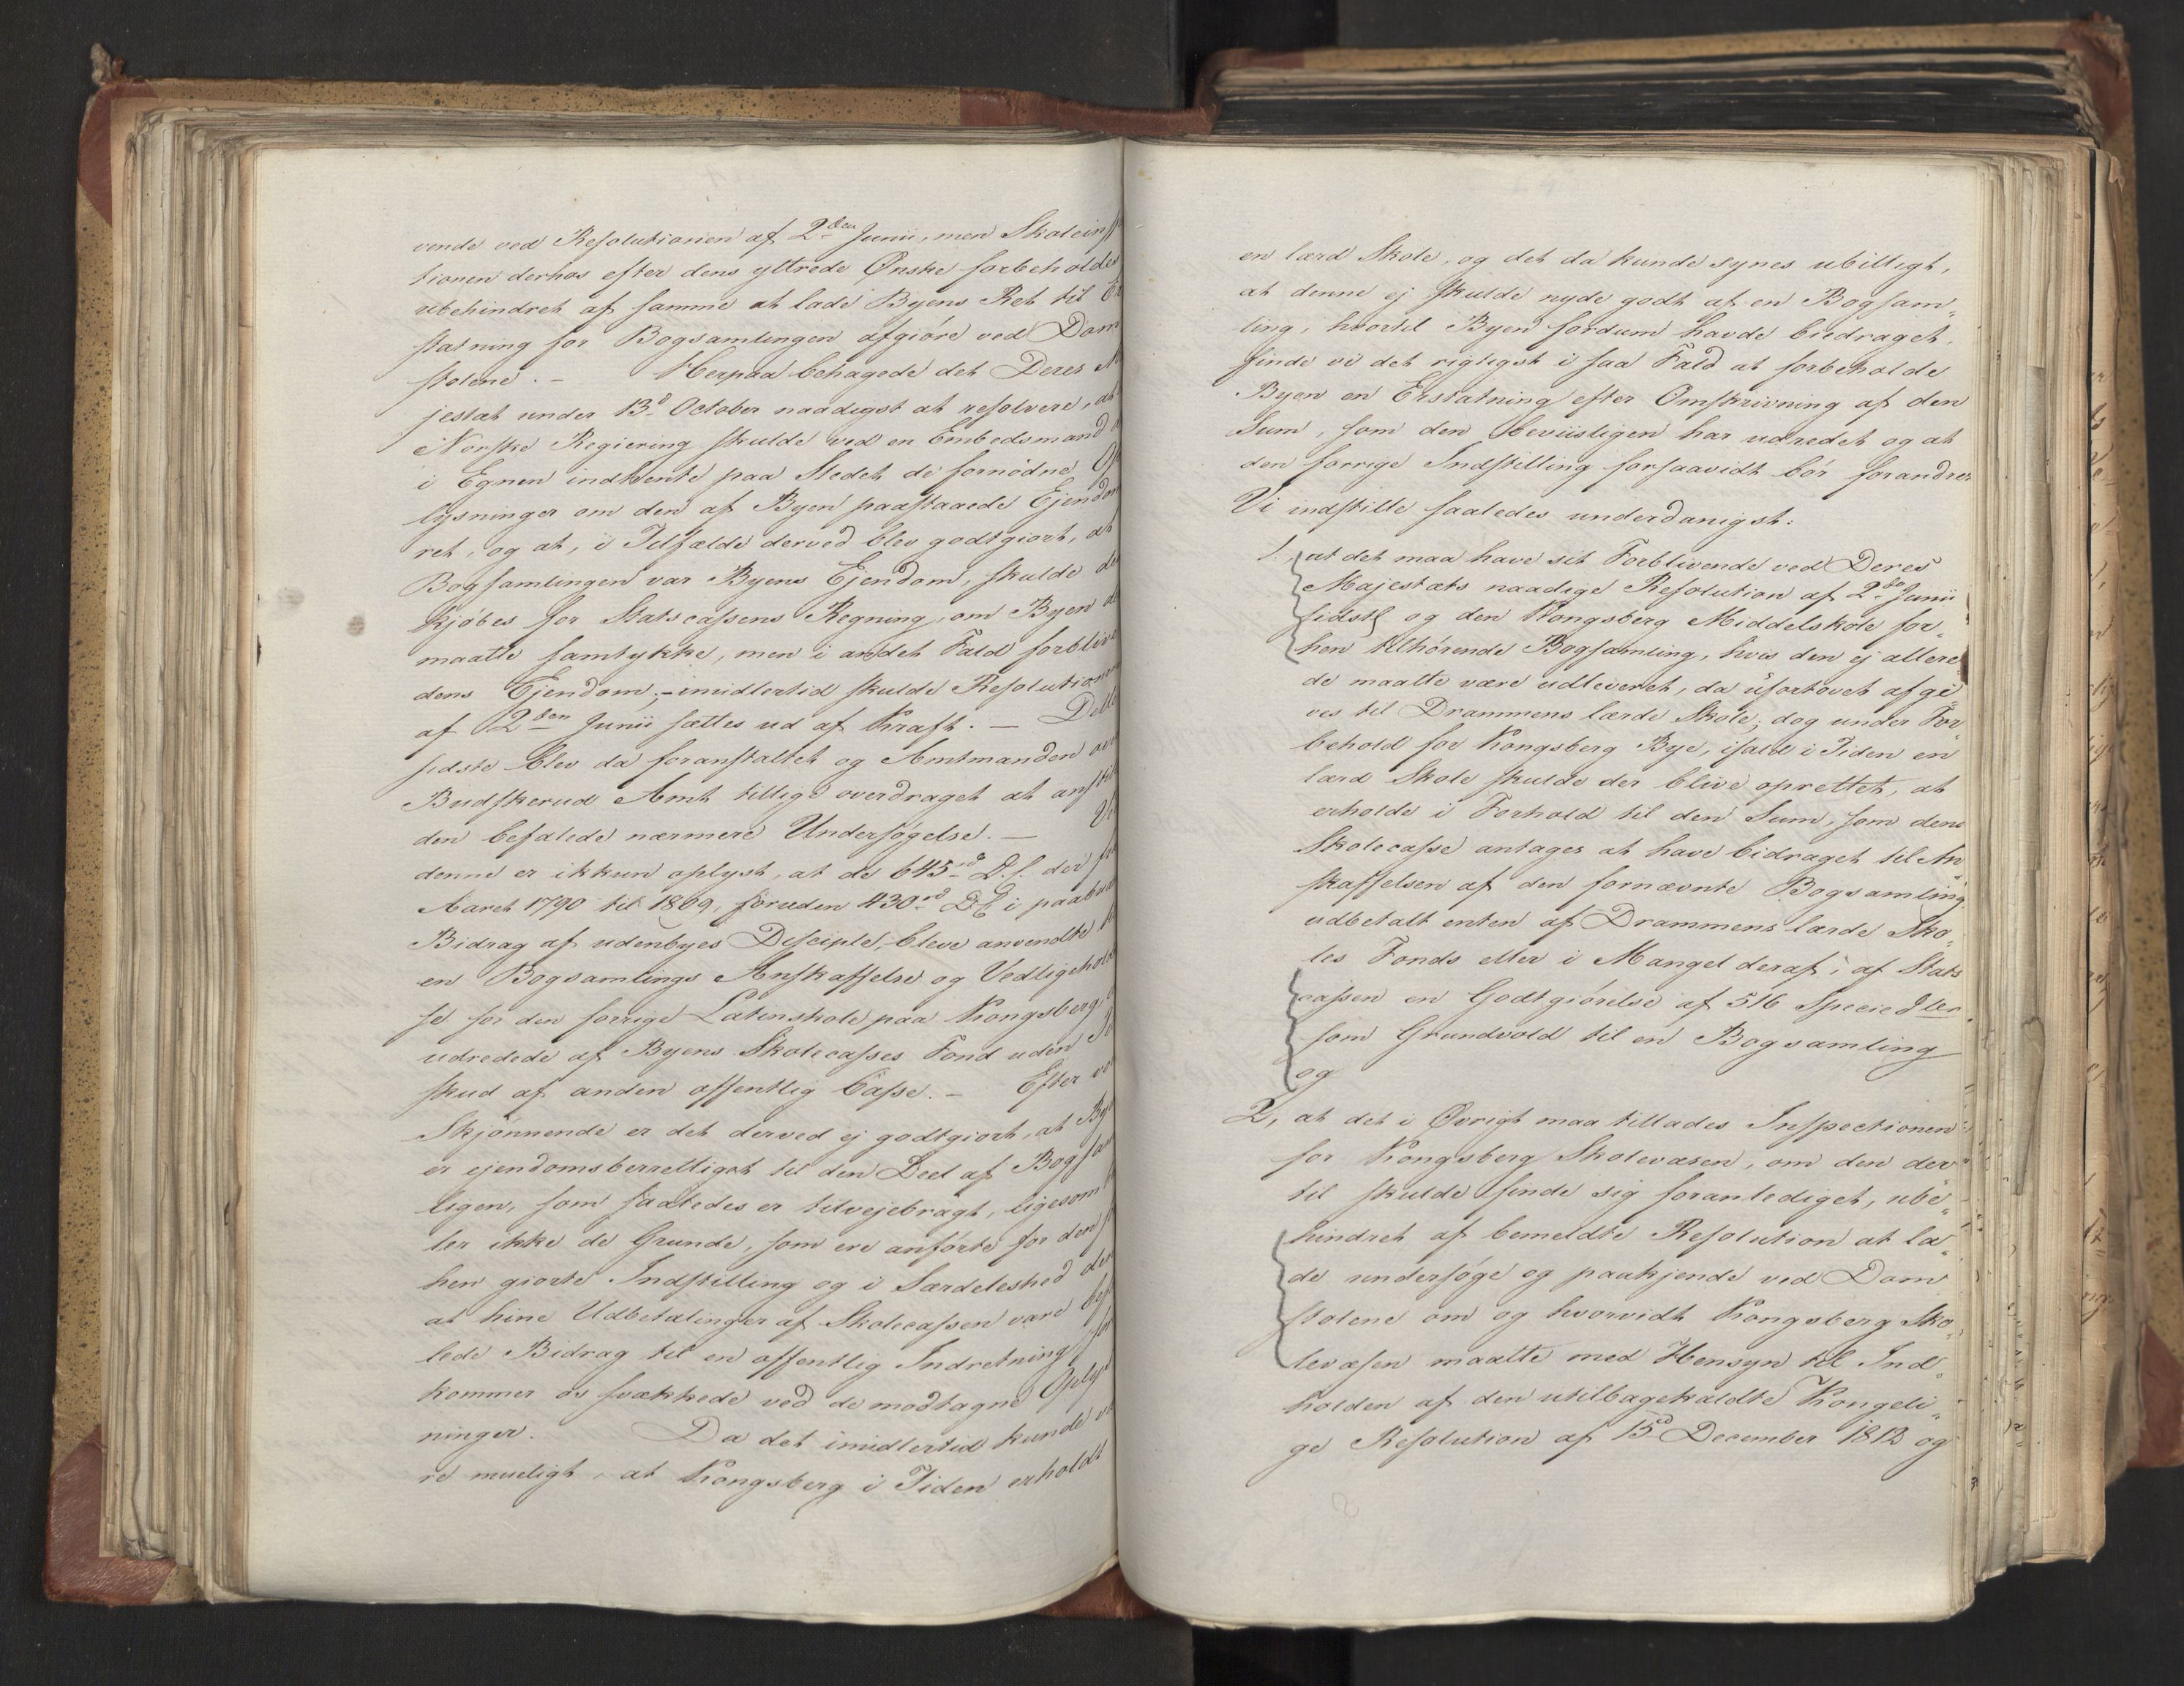 vende ved Resolutionen af 2den Junii, men Skoleinsp
tionen derhos efter dens yttrede Ønske forbeholdes
ubehindret af samme at lade Byens Ret til Er
statning for Bogsamlingen afgiøre ved Dom
stolene. — Herpaa behagede det Deres M
jestæt under 13d October naadigst at resolvere, at
Norske Regiering skulde ved en Embedsmand
i Egnen indhente paa Stedet de fornødne Op
lysninger om den af Byen paastaaede Ejendom
ret, og at, i Tilfælde derved blev godtgiort, at
Bogsamlingen var Byens Ejendom, skulde de
kjøbes for Statscassens Regning, om Byen de
maatte samtykke, men i andet Fald forblive
dens Ejendom; - imidlertid skulde Resolutionen
af 2den Junii sættes ud af Kraft. — Dette
sidste blev da foranstaltet og Amtmanden ov
Budskerud Amt tillige overdraget at anstil
den befalede nærmere Undersøgelse. — Ve
denne er ikkun oplyst, at de 645rd D.C. der fra
Aaret 1790 til 1809, foruden 430rd D.C. i paabud
Bidrag af udenbyes Disciple, bleve anvendte
en Bogsamlings Anskaffelse og Vedligehold
se for den forrige Latinskole paa Kongsberg,
udredede af Byens Skolecasses Fond uden Ti
skud af anden offentlig Casse. — Efter vo
Skjønnende er det derved ej godtgiort, at Bye
er ejendomsberrettiget til den Deel af Bogsam
lingen, som saaledes er tilvejebragt, ligesom
ler ikke de Grunde, som ere anførte for den
hen giorte Indstilling og i Særdeleshed de
at hine Udbetalinger af Skolecassen vare bef
lede Bidrag til en offentlig Indretning, for
kommer os svækkede ved de modtagne Oplys
ninger. Da det imidlertid kunde væ
re mueligt, at Kongsberg i Tiden erholdt
en lærd Skole, og det da kunde synes ubilligt,
at denne ej skulde nyde godt af en Bogsam„
ling, hvortil Byen fordum havde bidraget,
finde vi det rigtigst i saa Fald at forbeholde
Byen en Erstatning efter Omskrivning af den
Sum, som den beviisligen har udredet og at
den forrige Indstilling forsaavidt bør forandres
Vi indstille saaledes underdanigst:
1, at det maa have sit Forblivende ved Deres
Majestæts naadige Resolution af 2den Junii
sidstl og den Kongsberg Middelskole for„
hen tilhørende Bogsamling, hvis den ej allere
de maatte være udleveret, da ufortøvet afgi
ves til Drammens lærde Skole; dog under For
behold for Kongsberg Bye, ifald i Tiden en
lærd Skole skulde der blive oprettet, at
erholde i Forhold til den Sum, som dens
Skolecasse antages at have bidraget til An
skaffelsen af den fornævnte Bogsamling
udbetalt enten af Drammens lærde Sko„
les Fonds eller i Mangel deraf, af Stats
cassen en Godtgiørelse af 516 Speciedler
som Grundvold til en Bogsamling
og
2, at det i Øvrigt maa tillades Inspectionen
for Kongsberg Skolevæsen, om den der
til skulde finde sig foranlediget, ube„
hindret af bemeldte Resolution at la„
de undersøge og paakjende ved Dom
stolene om og hvorvidt Kongsberg Sko„
levæsen maatte med Hensyn til Ind„
holden af den utilbagekaldte Kongeli„
ge Resolution af 15d December 1812 og